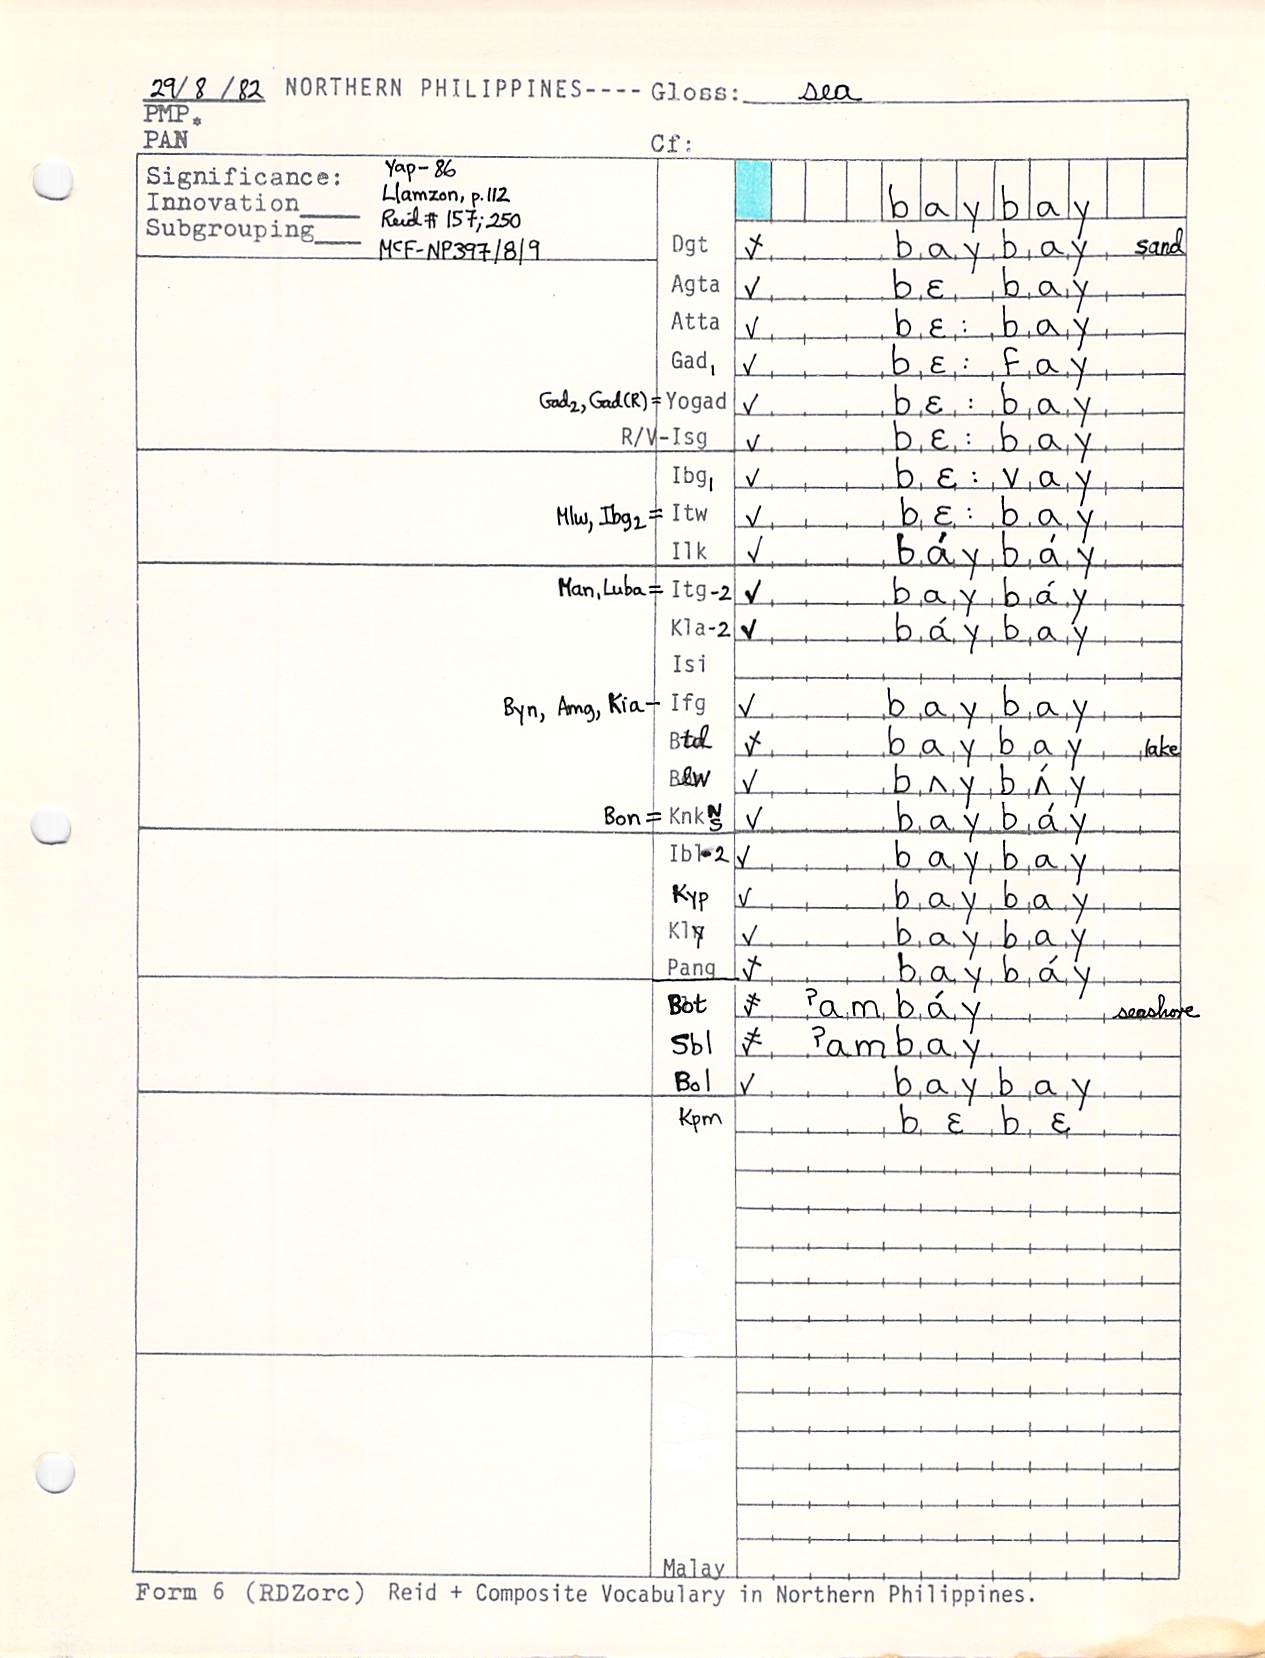 29/8/82 NORTHERN PHILIPPINES---- Gloss: sea
PMP*
PAN Cf:
Significance: Yap-86
Innovation____ Llamzon, p.112
Subgrouping___ Reid # 157; 250
McF-NP397/8/9
baybay
Dgt baybay sand
Agta ✓ bɛ bay
Atta ✓ bɛ: bay
Gad₁ ✓ bɛ: fay
Gad₂, Gad(R) = Yogad ✓ bɛ: bay
R/V-Isg ✓ bɛ: bay
Ibg₁ ✓ bɛ: vay
Mlw, Ibg₂ = Itw ✓ bɛ: bay
Ilk ✓ báybáy
Man, Luba = Itg-2 ✓ baybáy
Kla-2 ✓ báybay
Isi
Byn, Amg, Kia- Ifg ✓ baybay
Btd baybay lake
Blw ✓ bʌybʌ́y
Bon = Knk N S ✓ baybáy
Ibl-2 ✓ baybay
Kyp ✓ baybay
Kly ✓ baybay
Pang baybáy
Bot ʔambáy seashore
Sbl ʔambay
Bol ✓ baybay
Kpm bɛbɛ
Malay
Form 6 (RDZorc) Reid + Composite Vocabulary in Northern Philippines.